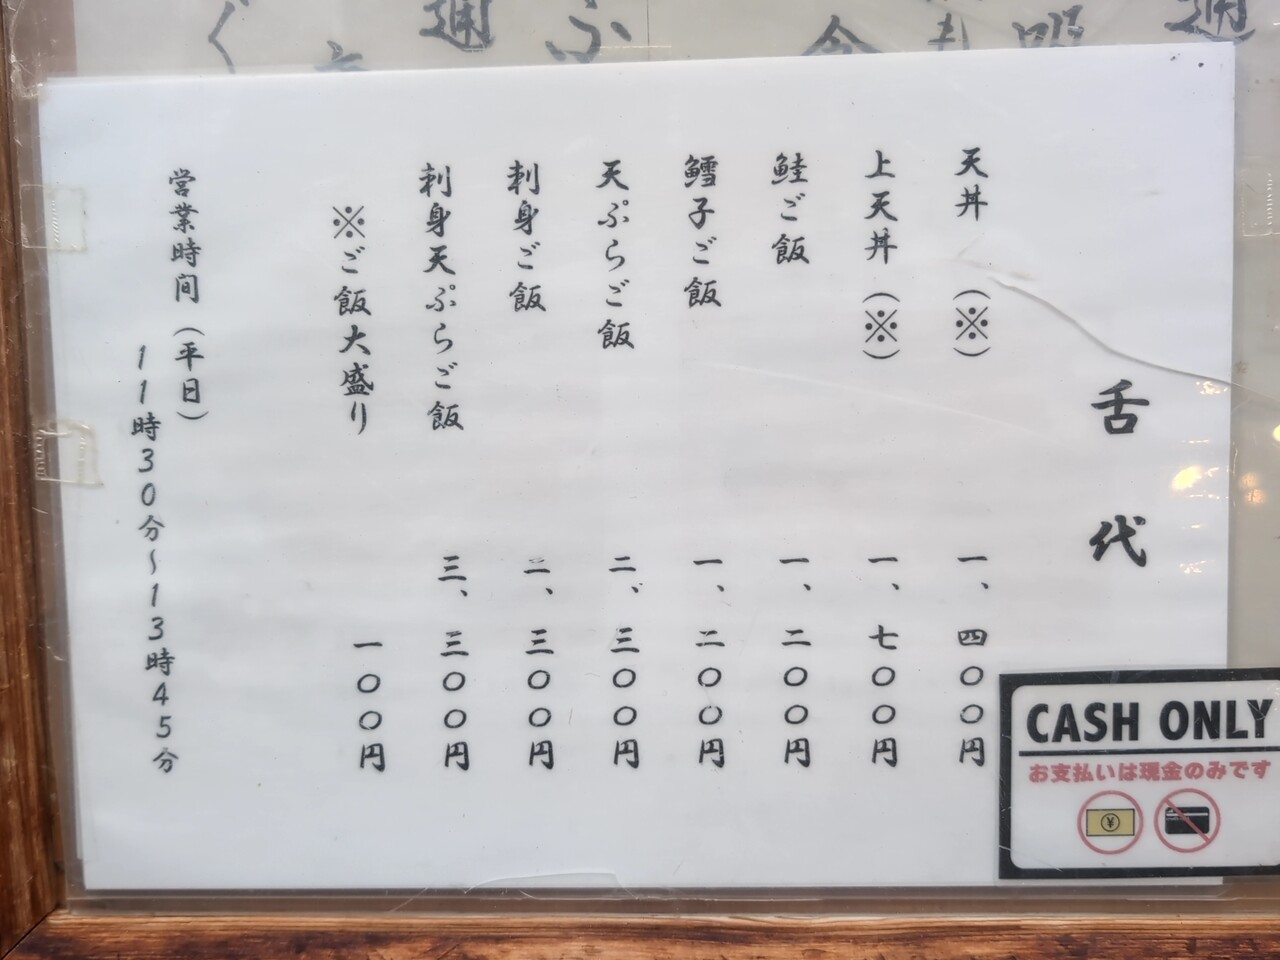 舌代
天丼(※) 一、四〇〇円
上天丼(※) 一、七〇〇円
鮭ご飯 一、二〇〇円
鱈子ご飯 一、二〇〇円
天ぷらご飯 二、三〇〇円
刺身ご飯 二、三〇〇円
刺身天ぷらご飯 三、三〇〇円
※ご飯大盛り 一〇〇円
営業時間(平日)
11時30分~13時45分
CASH ONLY
お支払いは現金のみです